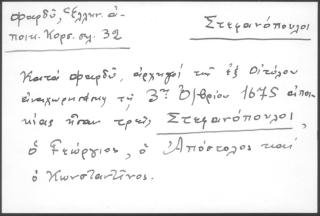 Φαρδύ, Ἑλλην. ἀ-
ποικ. Κορσ. σλ. 32
Στεφανόπουλοι
Κατὰ Φαρδύ, ἀρχηγοὶ τῆς ἐξ Οἰτύλου
ἀναχωρησάσης τῇ 3ῃ 8/βρίου 1675 ἀποι-
κίας ἦσαν τρεῖς Στεφανόπουλοι,
ὁ Γεώργιος, ὁ Ἀπόστολος καὶ
ὁ Κωνσταντῖνος.